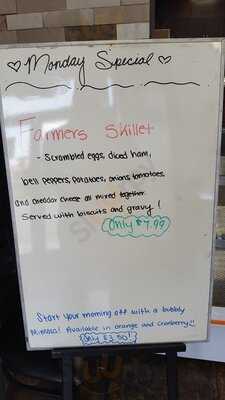 ♡ Monday Special ♡
Farmers Skillet
- Scrambled eggs, diced ham,
bell peppers, potatoes, onions, tomatoes,
and cheddar cheese all mixed together.
Served with biscuits and gravy!
Only $7.99
Start your morning off with a bubbly
Mimosa! Available in orange and cranberry!!
Only $3.50!